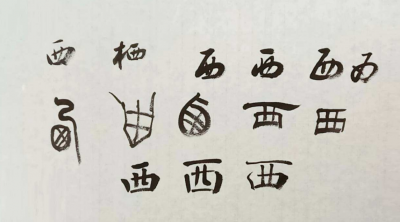 西 栖 西 西 西 西
西 西 西 西 西
西 西 西